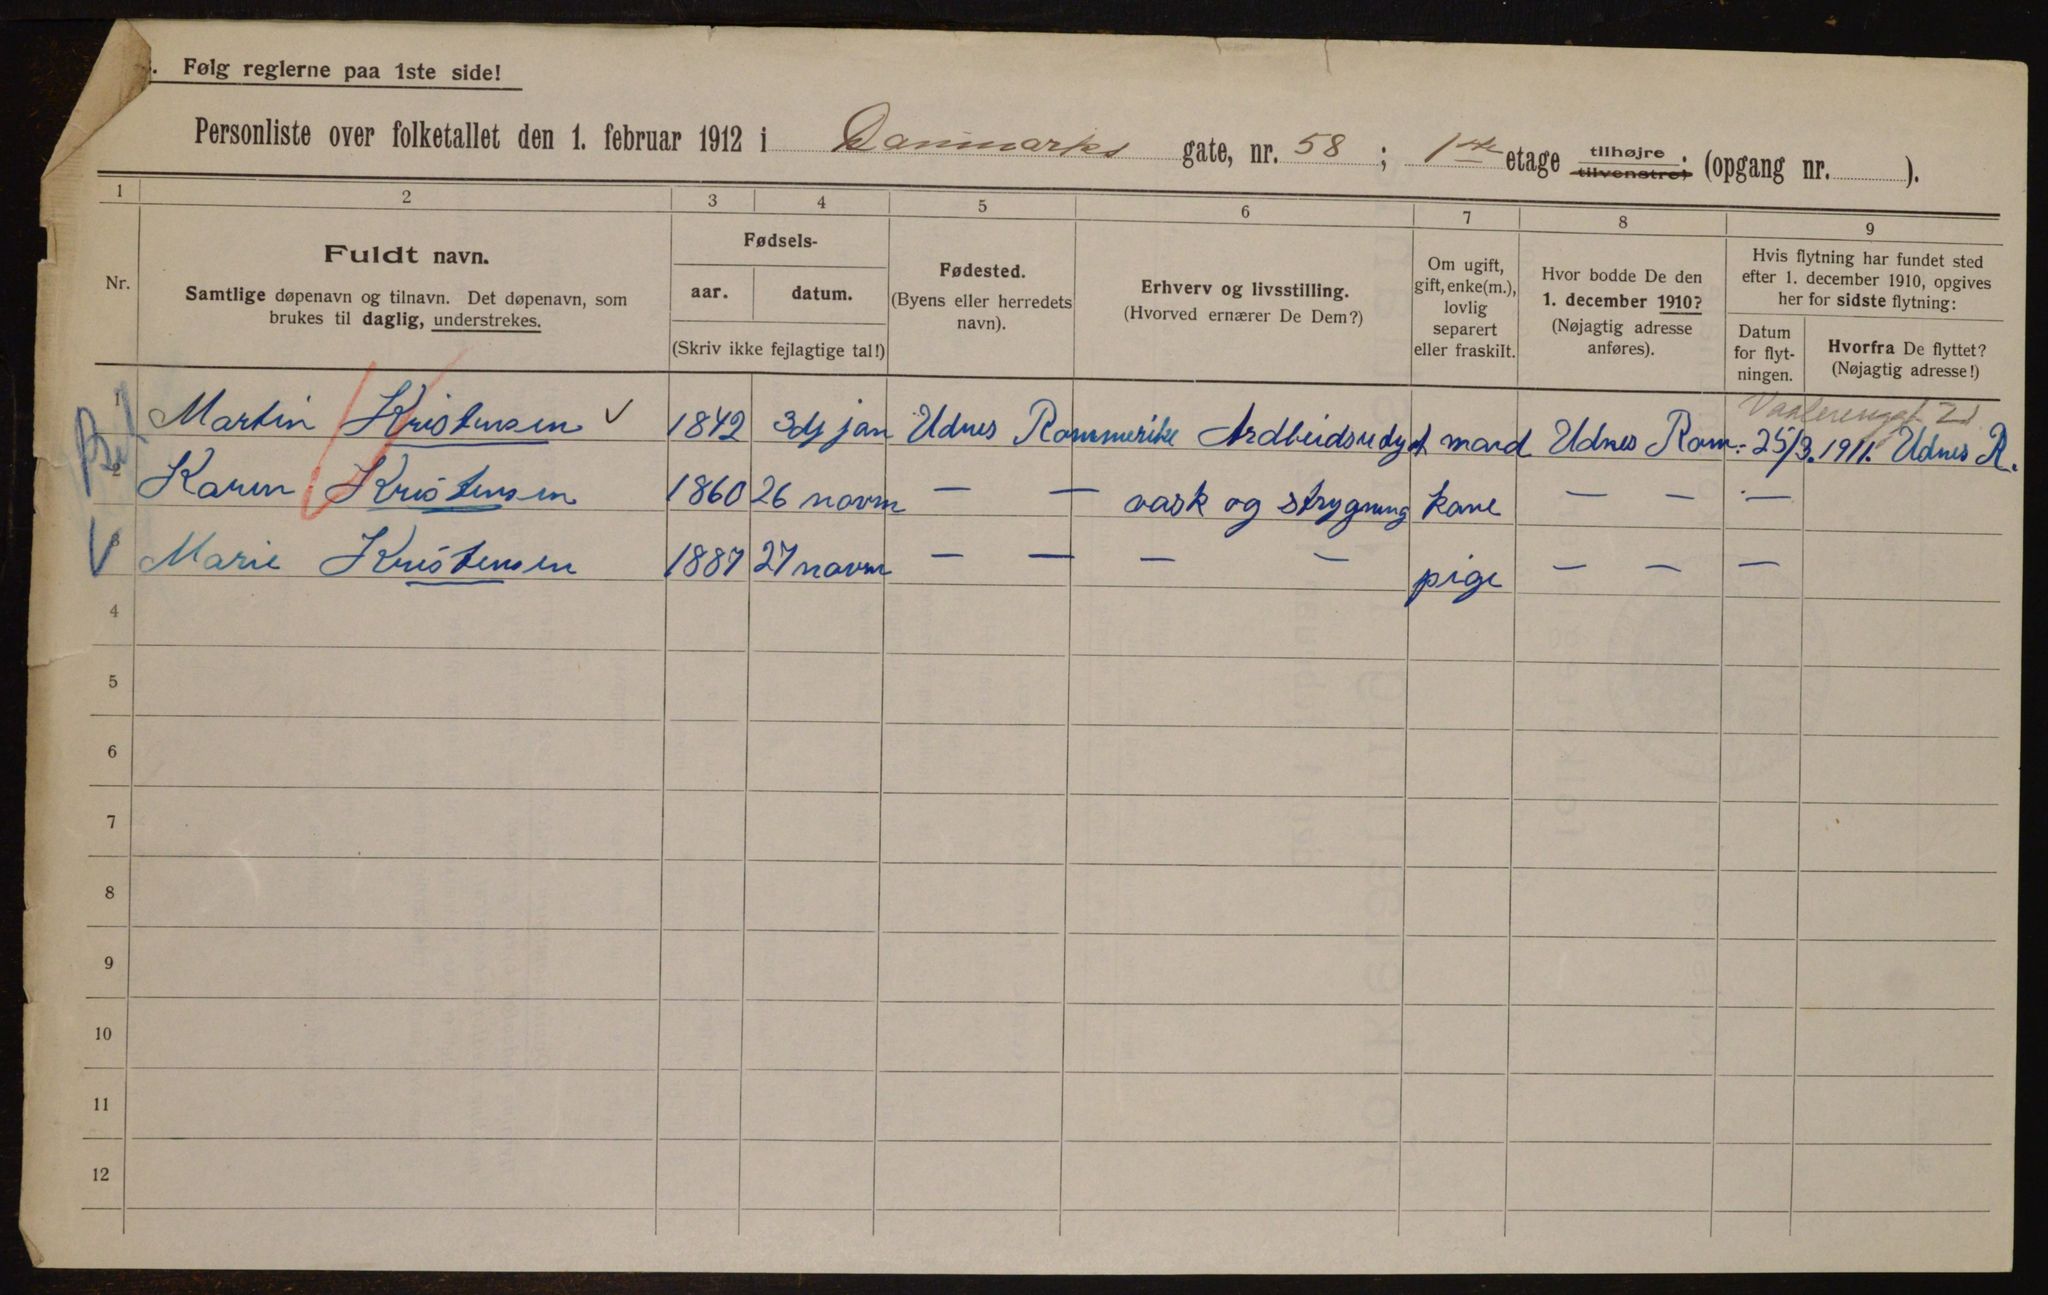 Følg reglerne paa 1ste side!
Personliste over folketallet den 1. februar 1912 i Danmarks gate, nr. 58 ; 1ste etage tilhøjre tilvenstre; (opgang nr. ).
1 2 3 4 5 6 7 8 9
Nr.
Fuldt navn.
Samtlige døpenavn og tilnavn. Det døpenavn, som
brukes til daglig, understrekes.
Fødsels-
aar. datum.
(Skriv ikke fejlagtige tal!)
Fødested.
(Byens eller herredets
navn).
Erhverv og livsstilling.
(Hvorved ernærer De Dem?)
Om ugift,
gift, enke(m.),
lovlig
separert
eller fraskilt.
Hvor bodde De den
1. december 1910?
(Nøjagtig adresse
anføres).
Hvis flytning har fundet sted
efter 1. december 1910, opgives
her for sidste flytning:
Datum
for flyt-
ningen.
Hvorfra De flyttet?
(Nøjagtig adresse!)
1 Martin Kristensen 1842 3dj jan Udnes Rommerike Ardbeidsudygt mand Udnes Rom. 25/3. 1911. Udnes R.
2 Karen Kristensen 1860 26 novm — — vask og strygning kone — — —
3 Marie Kristensen 1887 27 novm — — — — pige — — —
4
5
6
7
8
9
10
11
12